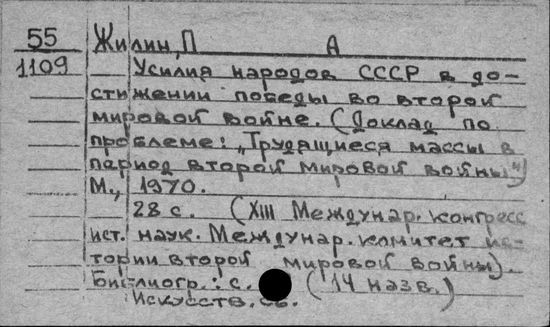 55 Жилин, П А
1109 Усилия народов СССР в до-
стижении победы во второй
мировой войне. (Доклад по
проблеме: „Трудящиеся массы в
период второй мировой войны")
М., 1970.
28 с. (XIII Междунар. конгресс
ист. наук. Междунар. комитет ис-
тории второй мировой войны).
Библиогр.: с. (14 назв.)
Искусств.